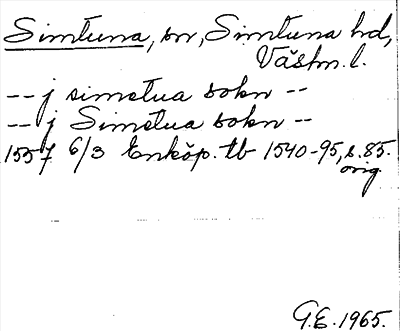 Simtuna, sn, Simtuna hd,
Västm. l.
-- j simetua sokn --
-- j Simetua sokn --
1557 6/3 Enköp. tb 1540-95, s. 85.
orig
G.E. 1965.